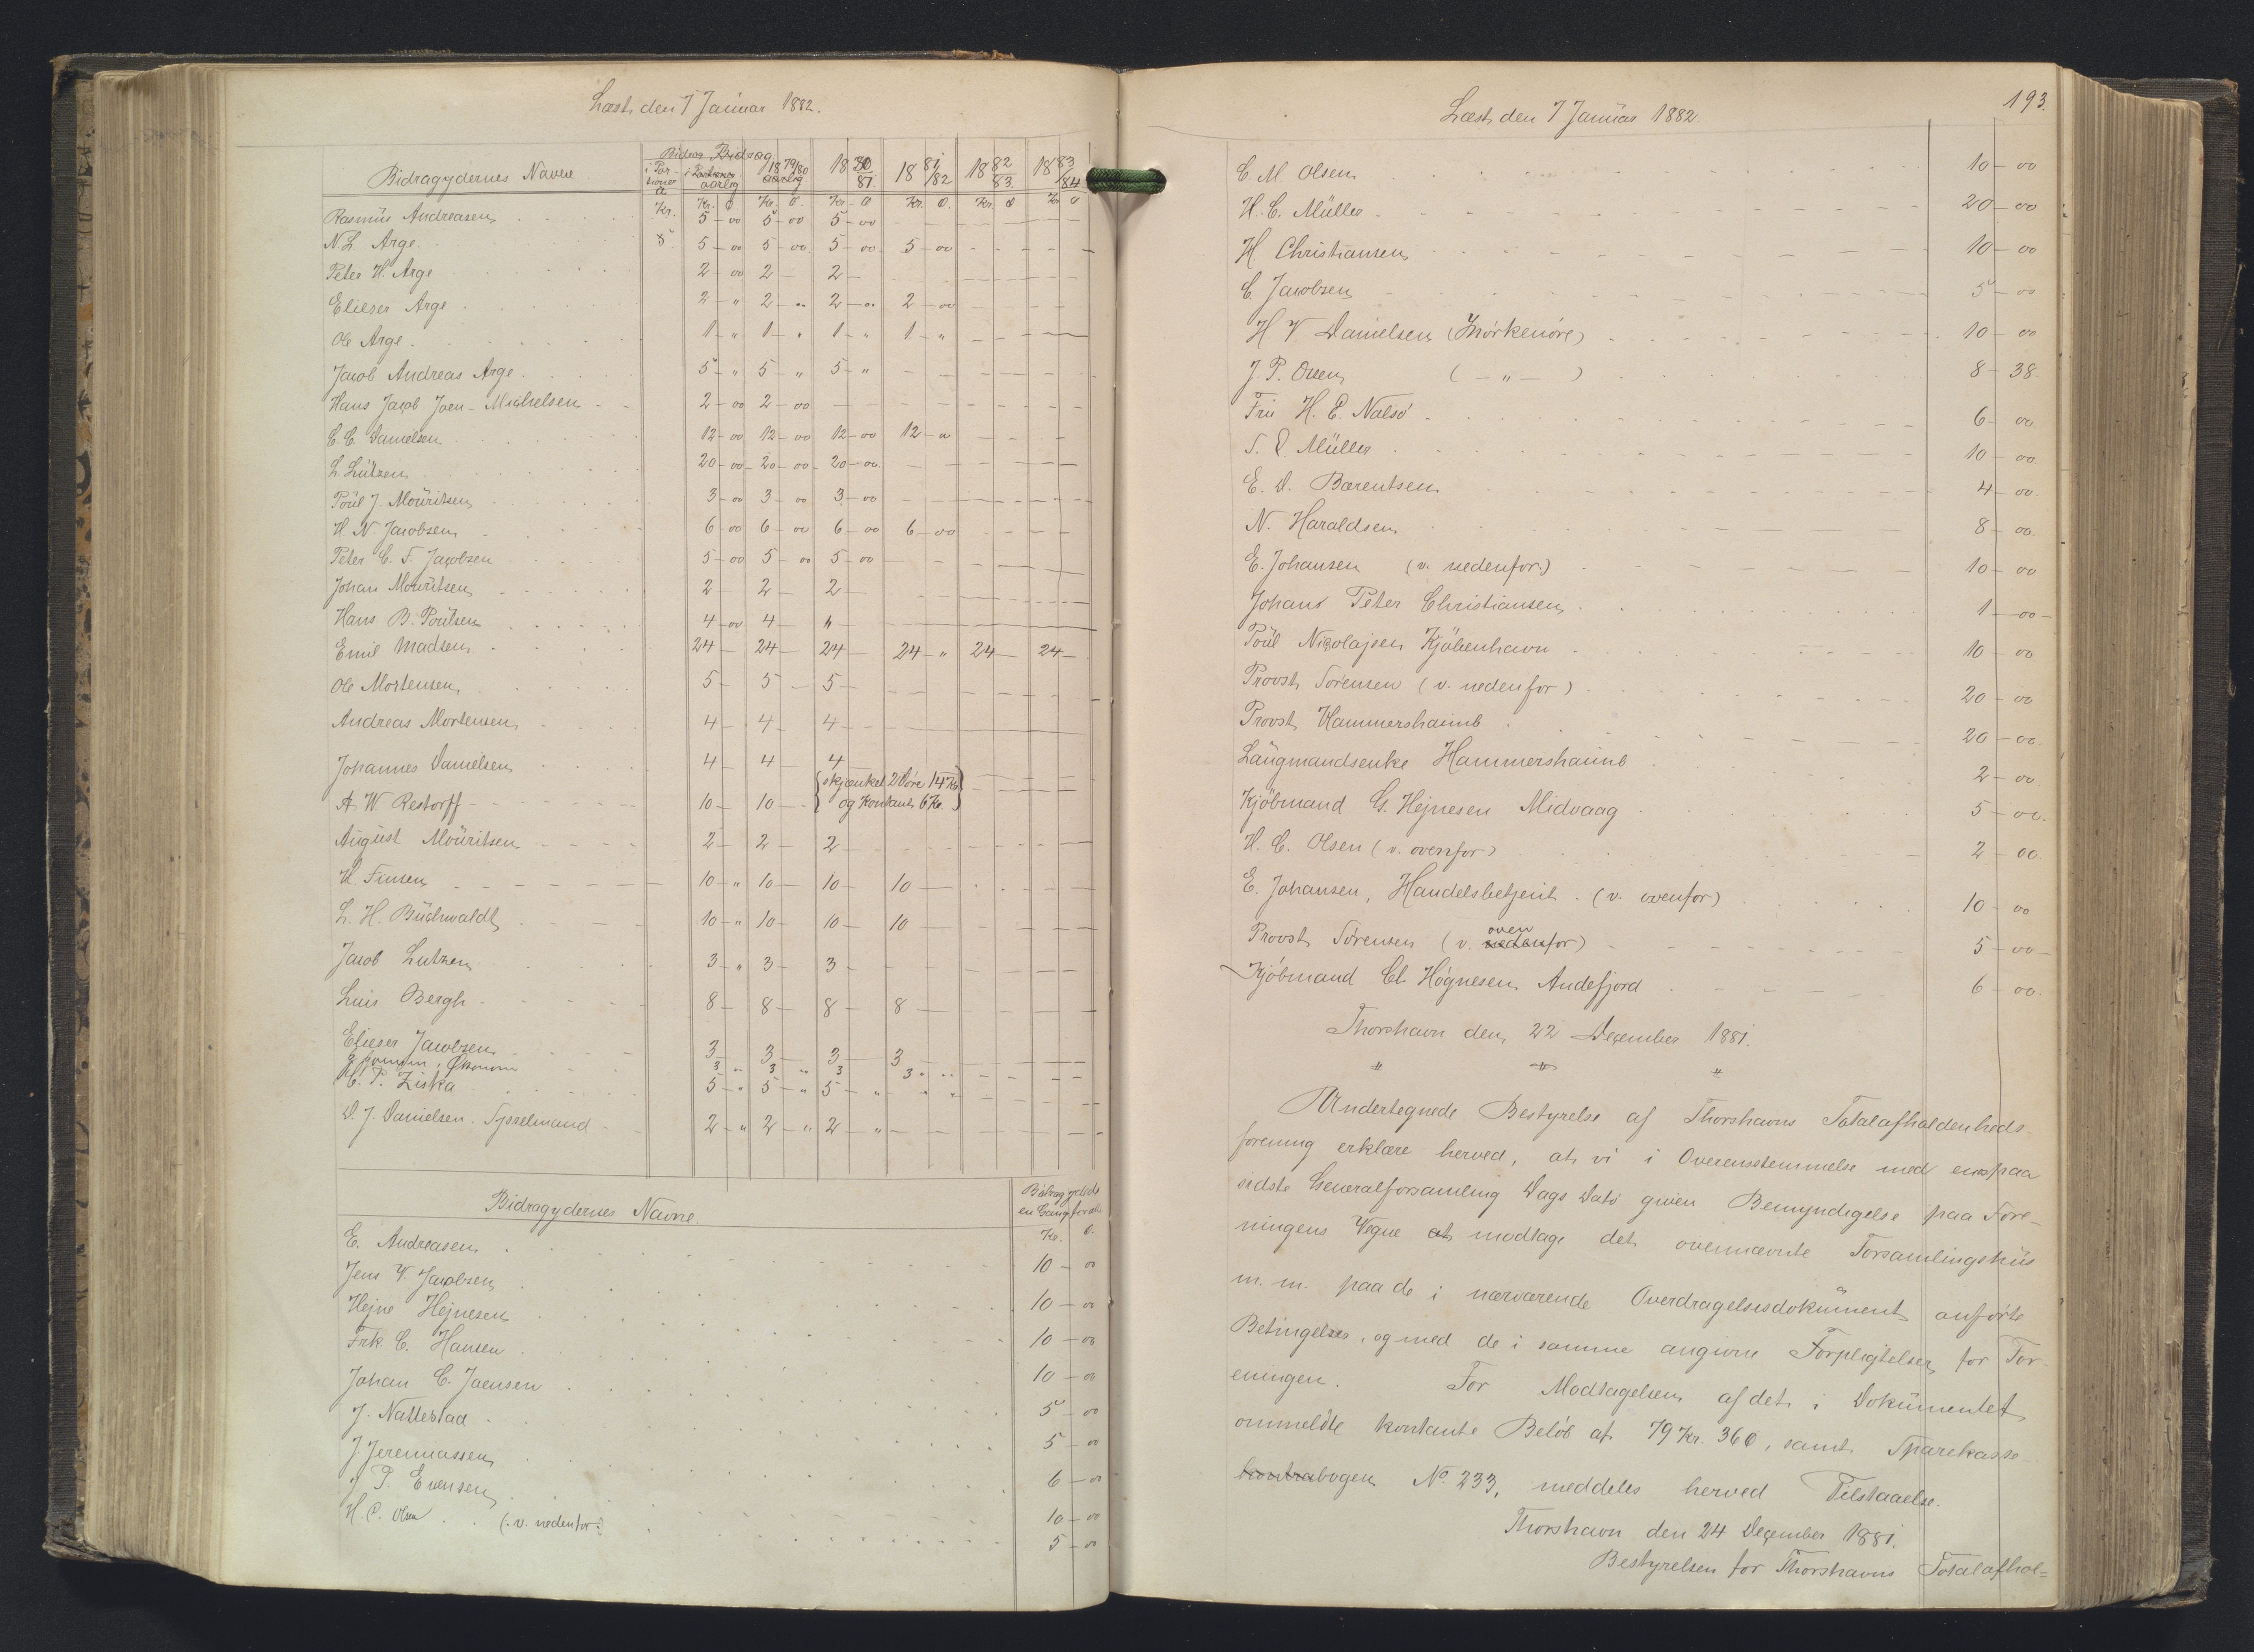 Læst den 7 Januar 1882.
Bidragydernes Navne
Bidrag
i Por-
tioner
a
aarlig
18 79/80
aarlig
18 80/81.
18 81/82
18 82/83.
18 83/84
Kr. Kr. Ø. Kr. Ø. Kr. Ø Kr. Ø. Kr. Ø Kr Ø
Rasmus Andreasen 5 - 00 5 - 00 5 - 00
N. L. Arge 8. 5 - 00 5 - 00 5 - 00 5 - 00
Peter H. Arge 2 - 00 2 - 2 -
Elieser Arge 2 - " 2 - " 2 - " 2 - 00
Ole Arge 1 - " 1 - " 1 - " 1 - "
Jacob Andreas Arge 5 - " 5 - " 5 - "
Hans Jacob Joen-Michelsen 2 - 00 2 - 00
C. C. Danielsen 12 - 00 12 - 00 12 - 00 12 - 00
L. Lützen 20 - 00 20 - 00 20 - 00
Poül J. Moüritsen 3 - 00 3 - 00 3 - 00
H. N Jacobsen 6 - 00 6 - 00 6 - 00 6 - 00
Peter C. F. Jacobsen 5 - 00 5 - 00 5 - 00
Johan Mouritsen 2 - 2 - 2 -
Hans B. Poülsen 4 - 00 4 - "
Emil Madsen 24 - 24 - 24 - 24 - " 24 - 24 -
Ole Mortensen 5 - 5 - 5 -
Andreas Mortensen 4 - 4 - 4 -
Johannes Danielsen 4 - 4 - 4
A. W Restorff 10 - 10 - {skjænket 2 Døre 14 Kr
og Kontant 6 Kr.}
August Moüritsen 2 - 2 - 2 -
H. Finsen 10 - " 10 - 10 - 10 -
L. H. Büchwaldt 10 - " 10 - 10 - 10
Jacob Lutzen 3 - " 3 - 3 -
Luis Bergh 8 - 8 - 8 - 8 -
Elieser Jacobsen 3 - 3 - 3 - 3 -
Økonom 3 " 3 " 3 3 "
C. P. Ziska 5 - " 5 - " 5 - "
D. J. Danielsen. Sysselmand 2 - " 2 - " 2 - "
Bidragydernes Navne
Bidrag ydede
en Gang for alle
Kr. Ø.
E. Andreasen 10 - 00
Jens V. Jacobsen 10 - 00
Hejne Hejnesen 10 - 00
Frk C. Hansen 10 - 00
Johan C. Joensen 5 - 00
J. Nattestad 5 - 00
J Jeremiassen 6 - 00
J P. Evensen 10 - 00
H. C. Olsen (v. nedenfor.) 5 - 00
193.
Læst den 7 Januar 1882
C. M Olsen 10 - 00
H. C. Müller 20 - 00
H Christiansen 10 - 00
C. Jacobsen 5 - 00
H V Danielsen (Knörkenöre) 10 - 00
J. P. Olsen ( - " - ) 8 - 38.
Frü H. E. Nalsö 6 - 00
S. E Müller 10 - 00
E. D. Bærentsen 4 - 00
N. Haraldsen 8 - 00
E. Johansen (v. nedenfor.) 10 - 00
Johans Peter Christiansen 1 - 00
Poül Nicolajsen Kjöbenhavn 10 - 00
Provst Sørensen (v. nedenfor) 20 - 00
Provst Hammershaimb 20 - 00
Laugmandsenke Hammershaimb 2 - 00
Kjöbmand G. Hejnesen Midvaag 5 - 00.
H. C. Olsen (v. ovenfor) 2 - 00.
E. Johansen, Handelsbetjent. (v. ovenfor) 10 - 00
Provst Sörensen (v. nedenfor) oven 5 - 00
Kjöbmand Cl. Högnesen Andefjord 6 - 00.
Thorshavn den 22 December 1881.
" " "
Undertegnede Bestyrelse af Thorshavns Totalafholdenheds-
forening erklære herved, at vi i Overensstemmelse med en paa
sidste Generalforsamling Dags Dato given Bemyndigelse paa Fore-
ningens Vegne at modtage det ovennævnte Forsamlingshüs
m. m. paa de i nærværende Overdragelsesdokument anførte
Betingelser, og med de i samme angivne Forpligtelser for For-
eningen. For Modtagelsen af det i Dokümentet
ommeldte kontante Beløb af 79 Kr. 36 Ø, samt Sparekasse
kontrabogen No 233, meddeles herved Tilstaaelse.
Thorshavn den 24 December 1881.
Bestyrelsen for Thorshavns Totalafhol=